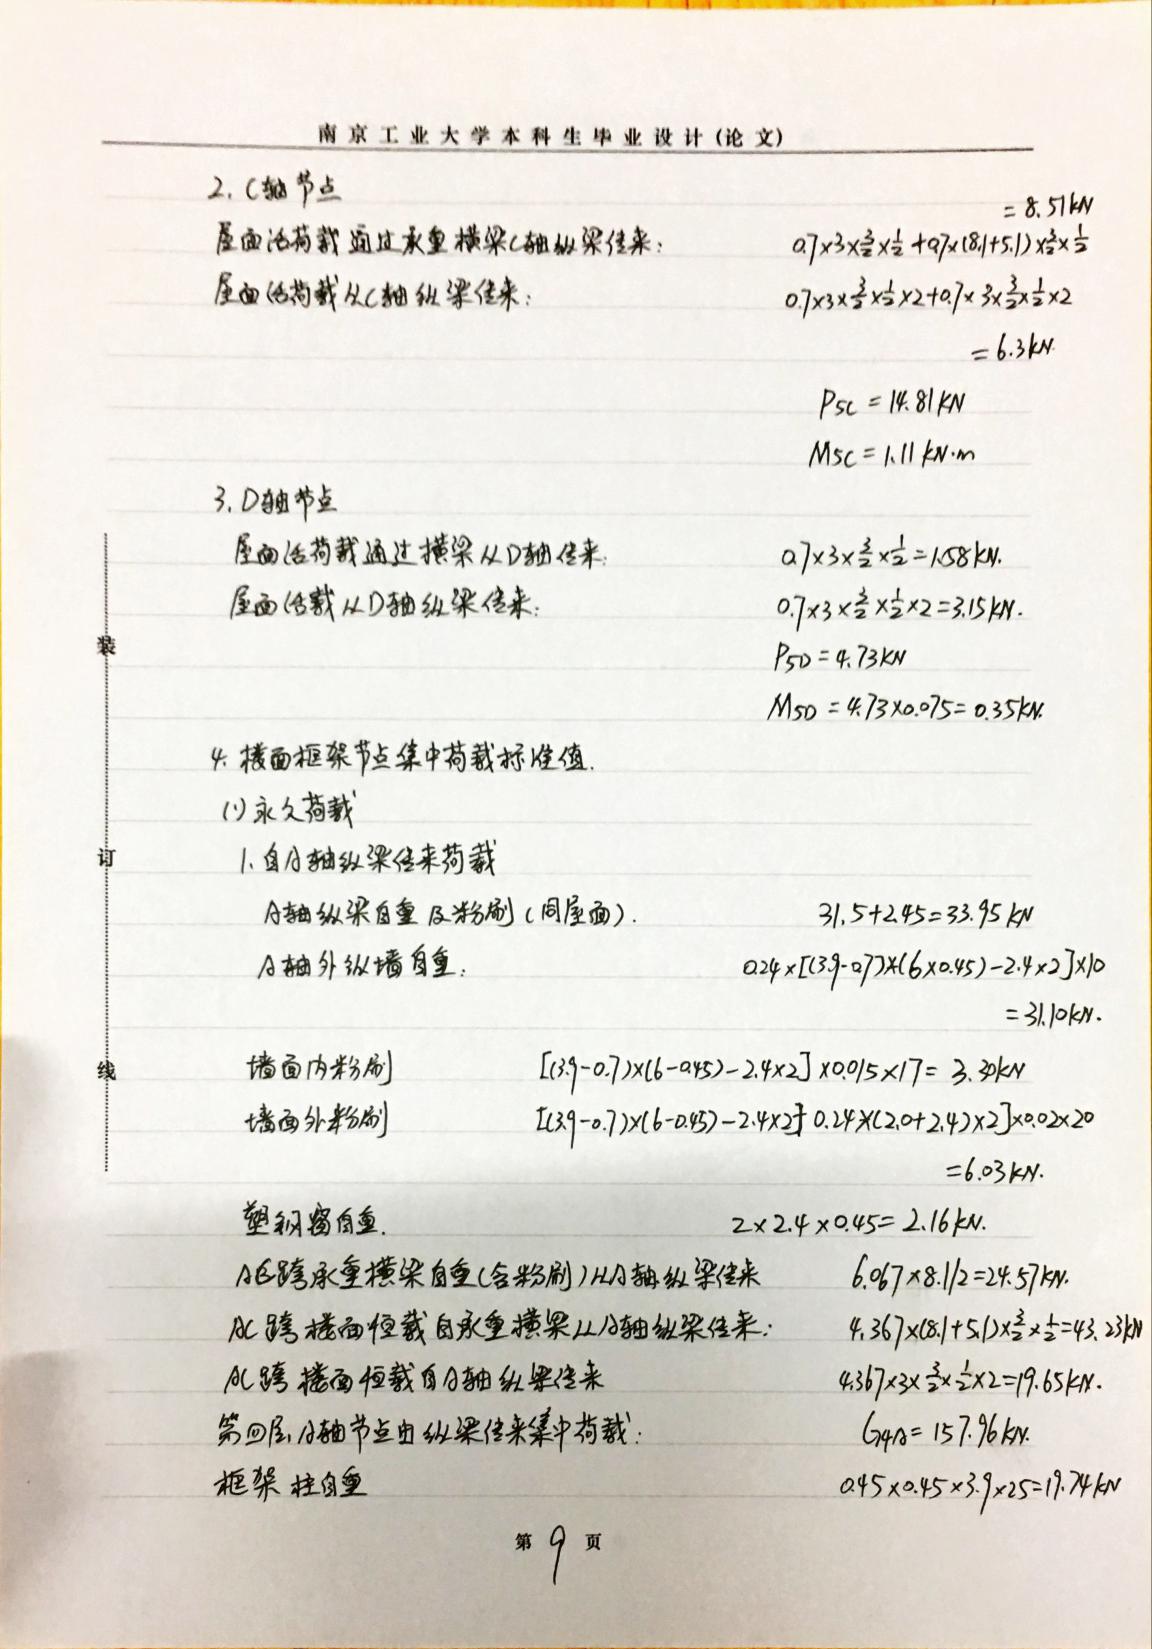 南京工业大学本科生毕业设计(论文)
2. C轴节点
= 8.51kN
屋面活荷载通过承重横梁C轴纵梁传来: 0.7×3×3/2×1/2+0.7×(8.1+5.1)×3/2×1/2
屋面活荷载从C轴纵梁传来: 0.7×3×3/2×1/2×2+0.7×3×3/2×1/2×2
= 6.3kN.
P5C = 14.81KN
M5C = 1.11 kN·m
3. D轴节点
屋面活荷载通过横梁从D轴传来: 0.7×3×3/2×1/2=1.58kN.
屋面活载从D轴纵梁传来: 0.7×3×3/2×1/2×2=3.15kN.
P5D=4.73KN
M5D = 4.73×0.075=0.35kN.
4. 楼面框架节点集中荷载标准值.
(1)永久荷载
1. 自A轴纵梁传来荷载
A轴纵梁自重及粉刷(同屋面). 31.5+2.45=33.95KN
A轴外纵墙自重: 0.24×[(3.9-0.7)×(6×0.45)-2.4×2]×10
=31.10kN.
墙面内粉刷 [(3.9-0.7)×(6-0.45)-2.4×2]×0.015×17= 3.30KN
墙面外粉刷 [(3.9-0.7)×(6-0.45)-2.4×2]+0.24×(2.0+2.4)×2]×0.02×20
=6.03kN.
塑钢窗自重. 2×2.4×0.45=2.16kN.
AC跨承重横梁自重(含粉刷)从A轴纵梁传来 6.067×8.1/2=24.57KN.
AC跨楼面恒载自承重横梁从A轴纵梁传来: 4.367×(8.1+5.1)×3/2×1/2=43.23KN
AC跨楼面恒载自A轴纵梁传来 4.367×3×3/2×1/2×2=19.65KN.
第四层A轴节点由纵梁传来集中荷载: G4A=157.96KN.
框架柱自重 0.45×0.45×3.9×25=19.74KN
装
订
线
第9页